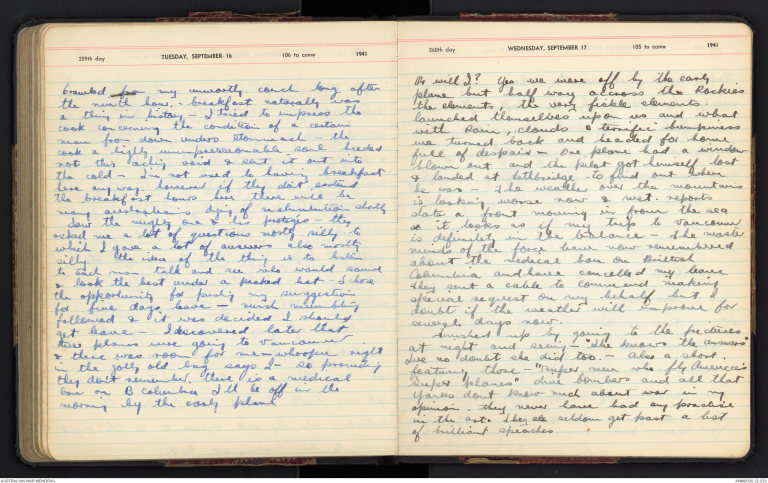 259th day TUESDAY, SEPTEMBER 16 106 to come 1941
crawled my unworthy couch long after
the ninth hour, - breakfast naturally was
a thing in history - I tried to impress the
cook concerning the condition of a certain
man from down unders stomach - the
cook a highly unimpressionable soul heeded
not this aching void & sent it out into
the cold - I'm not used to having breakfast
here anyway. however if they dont extend
the breakfast hours here there will be
many australians dying of malnutrition shortly
Saw the mighty one & his protegés - they
asked me a lot of questions mostly silly to
which I gave a lot of answers also mostly
silly the idea of the thing is to listen
to each man talk and see who would sound
& look the best under a peaked hat - I chose
the opportunity for pushing my suggestion
for five days leave - much mumbling
followed & it was decided I should
get leave - I discovered later that
three planes were going to Vancouver
& there was room for me - whoopee right
in the jolly old bag says I - so providing
they dont remember there is a medical
on B Columbia I'll be off in the
morning by the early plane
260th day WEDNESDAY, SEPTEMBER 17 105 to come 1941
Or will I? Yes we were off by the early
plane but half way accross the Rockies
the elements, the very fickle elements
launched themselves upon us and what
with Rain, clouds & terrific bumpiness
we turned back and headed for home
full of despair - One plane had a window
blown out and the pilot got himself lost
& landed at Lethbridge to find out where
he was - The weather over the mountains
is looking worse now & wet. reports
state a front moving in from the sea
so it looks as if my trip to Vancouver
is definitely in the balance - The master
minds of the force have now remembered
about the medical ban on British
Columbia and have cancelled my leave
They sent a cable to command making
special request on my behalf but I
doubt if the weather will improve for
several days now.
Finished up by going to the pictures
at night and seeing - "She knows the answers"
Ive no doubt she did too. - Also a short
featuring those - "super men who fly America's
super planes" dive bombers and all that
Yanks dont know much about war in my
opinion. they never have had any practice
in the art. They seldom get past a lot
of brilliant speaches
AUSTRALIAN WAR MEMORIAL